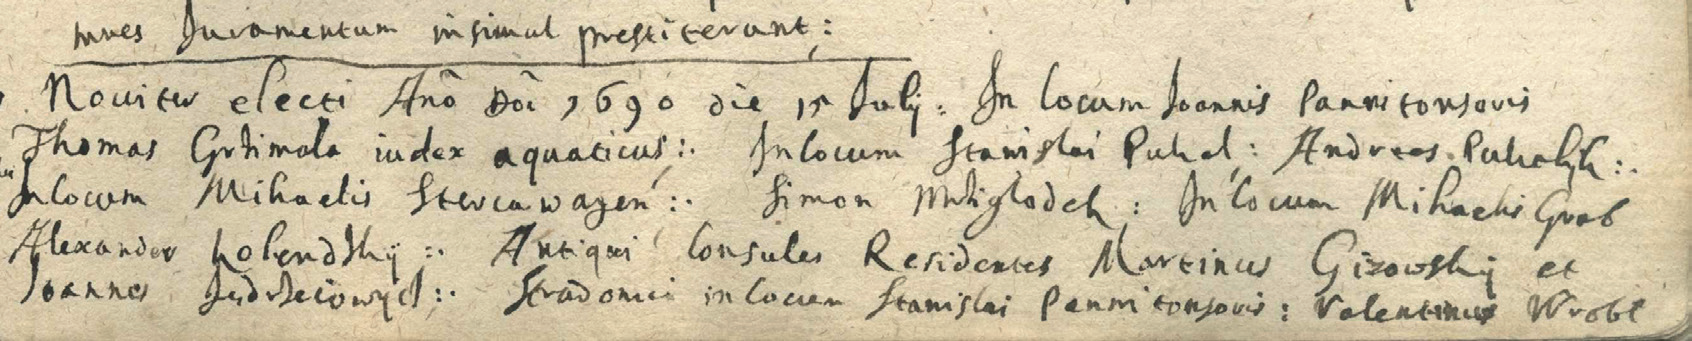 mnes Juramentum insimul prestiterant:
Nouiter electi Anō Doī 1690 die 15 Julij: In locum Joannis Pannitonsoris
Thomas Grzimala iudex aquaticus:. In locum Stanislai Puhal: Andreas Puhalyk:.
In locum Mihaelis Stercuwagen:. Simon Mniglodek: In locum Mihaelis Grab
Alexander Holendzkij:. Antiqui Consules Residentes Martinus Gizowskij et
Joannes :. Stradomiae in locum Stanislai Pannitonsoris: Valentinus Wrobl